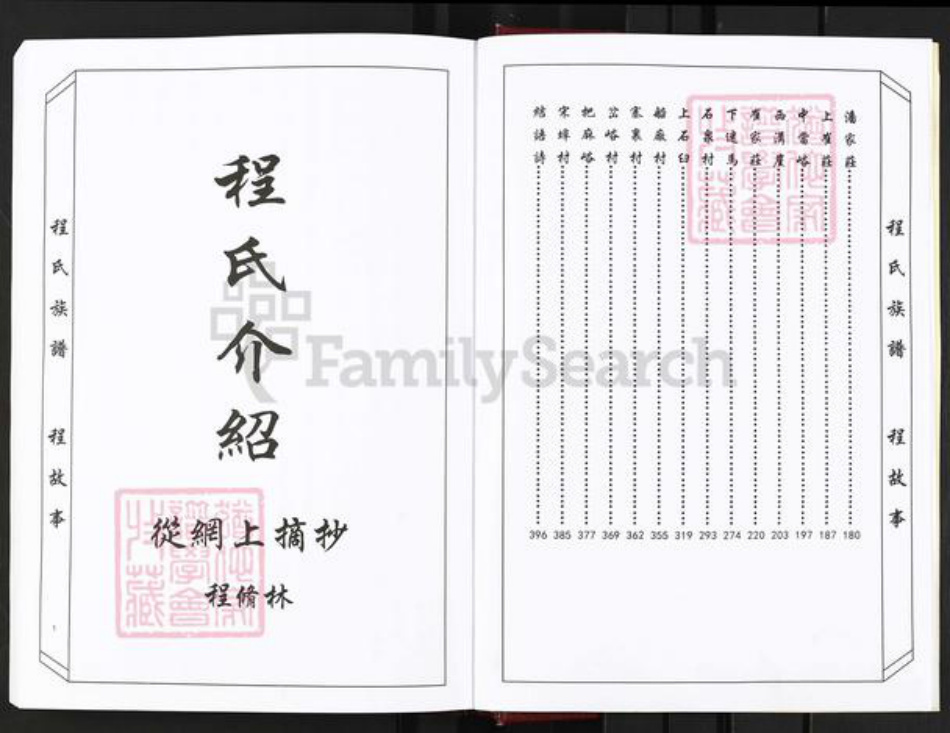 程氏族譜 程故事
潘家莊 180
上崔莊 187
中當峪 197
西溝崖 203
崔家莊 220
下速馬 274
石泉村 293
上石臼 319
船廠村 355
寨裏村 362
岔峪村 369
把麻峪 377
宋埠村 385
結語詩 396
程氏介紹
從網上摘抄
程脩林
程氏族譜 程故事
1
FamilySearch